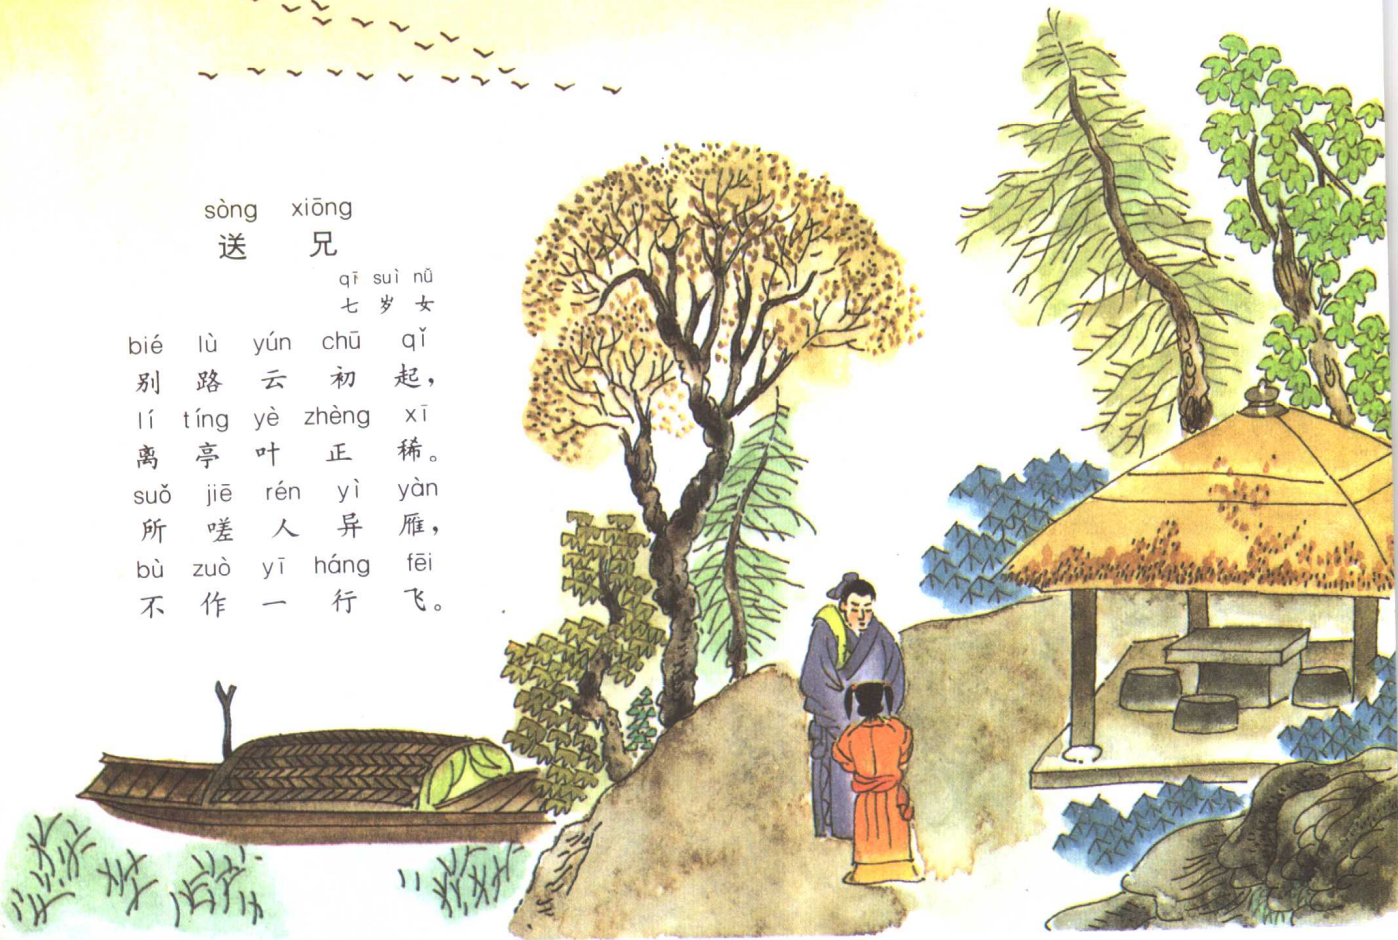 sòng xiōng
送 兄
qī suì nǚ
七 岁 女
bié lù yún chū qǐ
别 路 云 初 起，
lí tíng yè zhèng xī
离 亭 叶 正 稀。
suǒ jiē rén yì yàn
所 嗟 人 异 雁，
bù zuò yī háng fēi
不 作 一 行 飞。